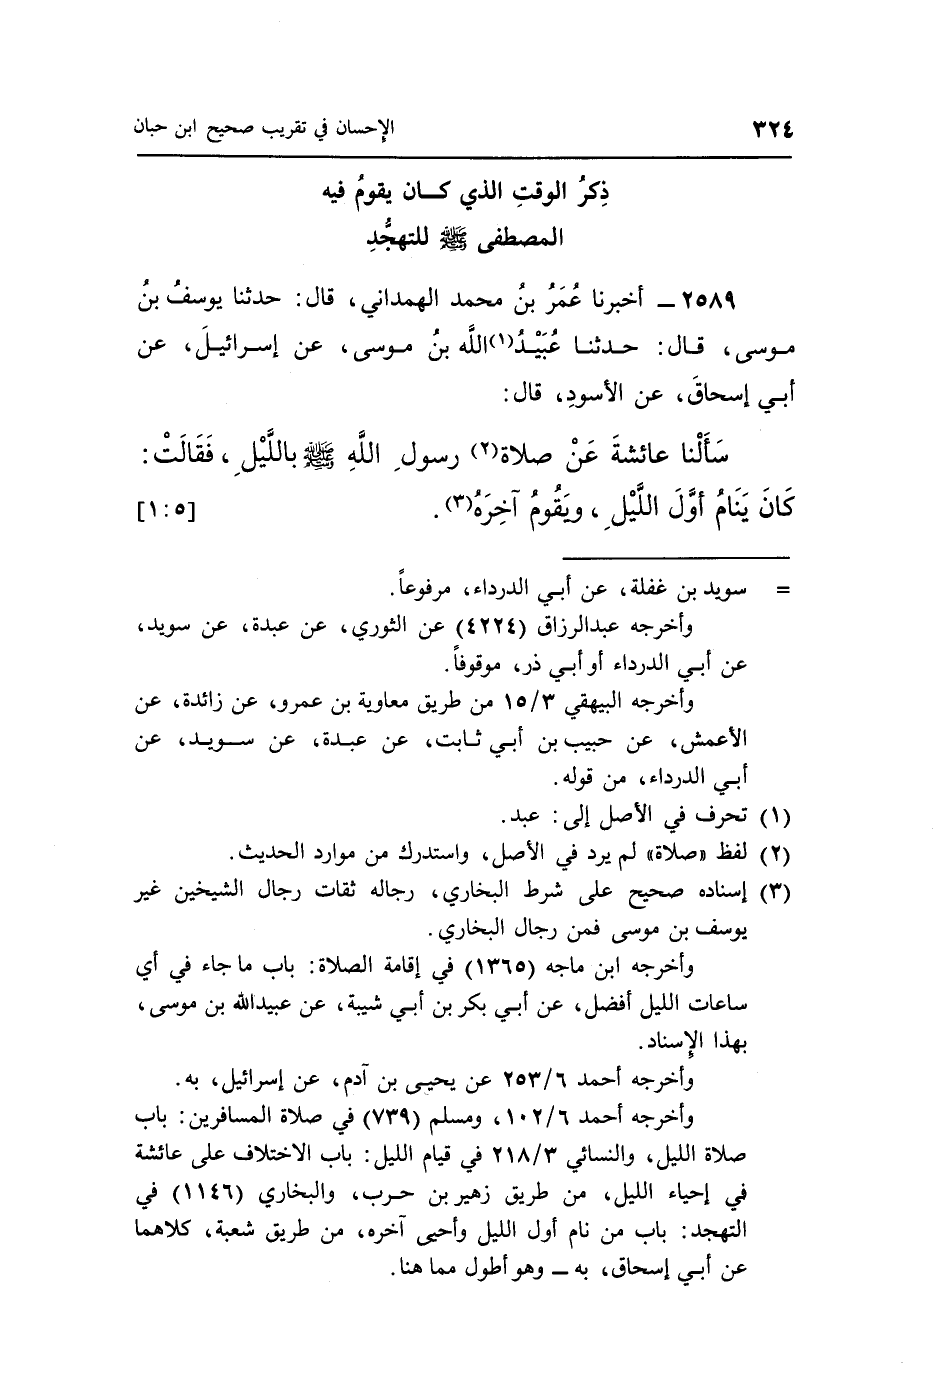 ٣٢٤ الإحسان في تقريب صحيح ابن حبان
ذِكرُ الوقتِ الذي كـان يقومُ فيه
المصطفى ﷺ للتهجُّدِ
٢٥٨٩ ـ أخبرنا عُمَرُ بنُ محمد الهمداني، قال: حدثنا يوسفُ بنُ
مـوسى، قـال: حـدثنـا عُبَيْـدُ(١)اللَّه بنُ مـوسى، عن إسـرائيـلَ، عن
أبـي إسحاقَ، عن الأسودِ، قال:
سَأَلْنا عائشةَ عَنْ صلاة(٢) رسولِ اللَّهِ ﷺ باللَّيْلِ، فَقَالَتْ:
كَانَ يَنَامُ أوَّلَ اللَّيْلِ، ويَقُومُ آخِرَهُ(٣). [١:٥]
= سويد بن غفلة، عن أبـي الدرداء، مرفوعاً.
وأخرجه عبدالرزاق (٤٢٢٤) عن الثوري، عن عبدة، عن سويد،
عن أبـي الدرداء أو أبـي ذر، موقوفاً.
وأخرجه البيهقي ١٥/٣ من طريق معاوية بن عمرو، عن زائدة، عن
الأعمش، عن حبيب بن أبـي ثـابت، عن عبـدة، عن سـويـد، عن
أبـي الدرداء، من قوله.
(١) تحرف في الأصل إلى: عبد.
(٢) لفظ «صلاة» لم يرد في الأصل، واستدرك من موارد الحديث.
(٣) إسناده صحيح على شرط البخاري، رجاله ثقات رجال الشيخين غير
يوسف بن موسى فمن رجال البخاري.
وأخرجه ابن ماجه (١٣٦٥) في إقامة الصلاة: باب ما جاء في أي
ساعات الليل أفضل، عن أبـي بكر بن أبـي شيبة، عن عبيدالله بن موسى،
بهذا الإسناد.
وأخرجه أحمد ٢٥٣/٦ عن يحيـى بن آدم، عن إسرائيل، به.
وأخرجه أحمد ١٠٢/٦، ومسلم (٧٣٩) في صلاة المسافرين: باب
صلاة الليل، والنسائي ٢١٨/٣ في قيام الليل: باب الاختلاف على عائشة
في إحياء الليل، من طريق زهير بن حـرب، والبخاري (١١٤٦) في
التهجد: باب من نام أول الليل وأحيى آخره، من طريق شعبة، كلاهما
عن أبـي إسحاق، به ـ وهو أطول مما هنا.